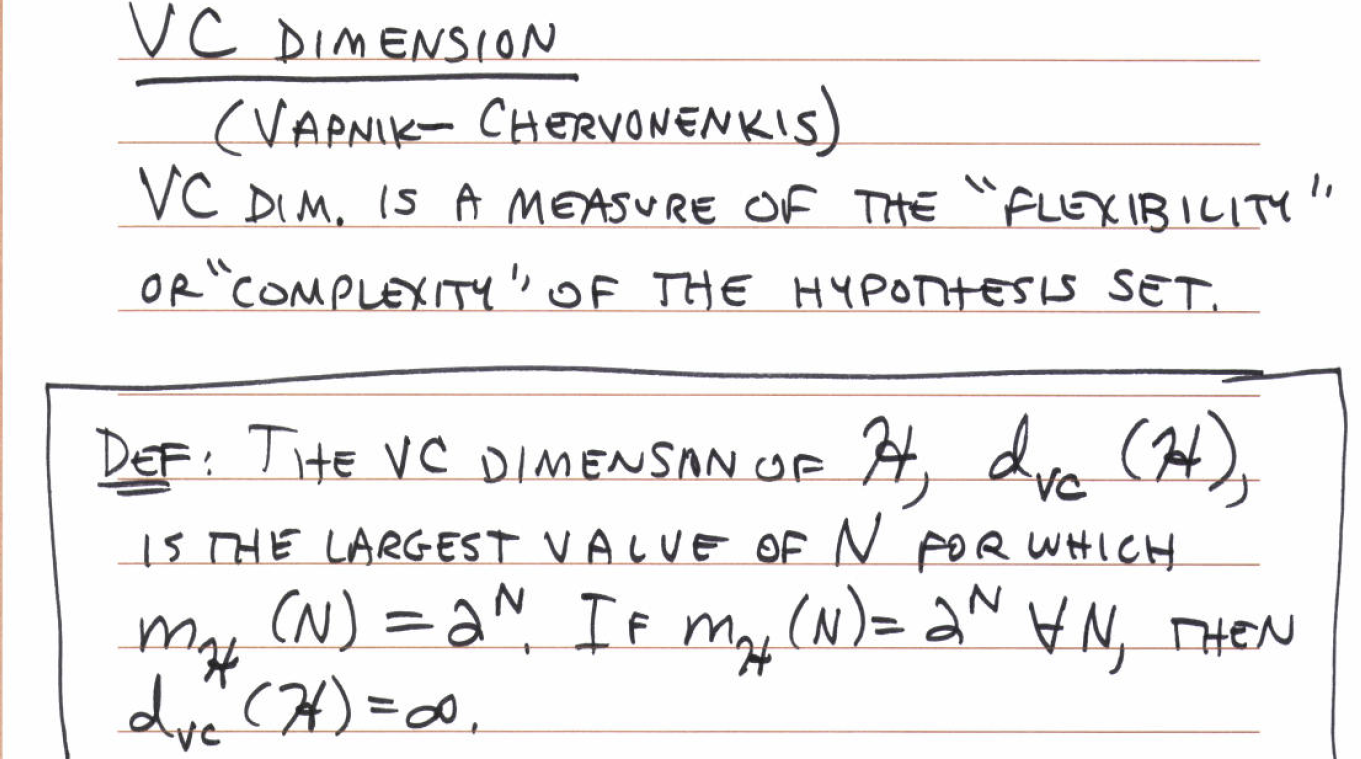 VC DIMENSION
(VAPNIK- CHERVONENKIS)
VC DIM. IS A MEASURE OF THE "FLEXIBILITY"
OR "COMPLEXITY" OF THE HYPOTHESIS SET.
DEF: THE VC DIMENSION OF ℋ, d_VC (ℋ),
IS THE LARGEST VALUE OF N FOR WHICH
m_ℋ (N) = 2^N. IF m_ℋ (N) = 2^N ∀N, THEN
d_VC (ℋ) = ∞.